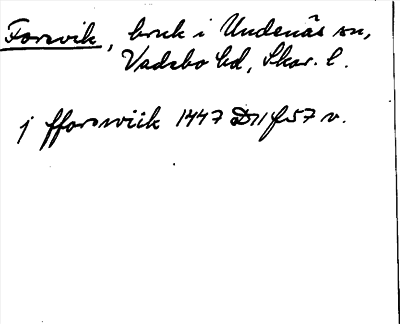 Forsvik, bruk i Undenäs sn,
Vadsbo hd, Skar. l.
j fforswiik 1447 D11 f 57 v.